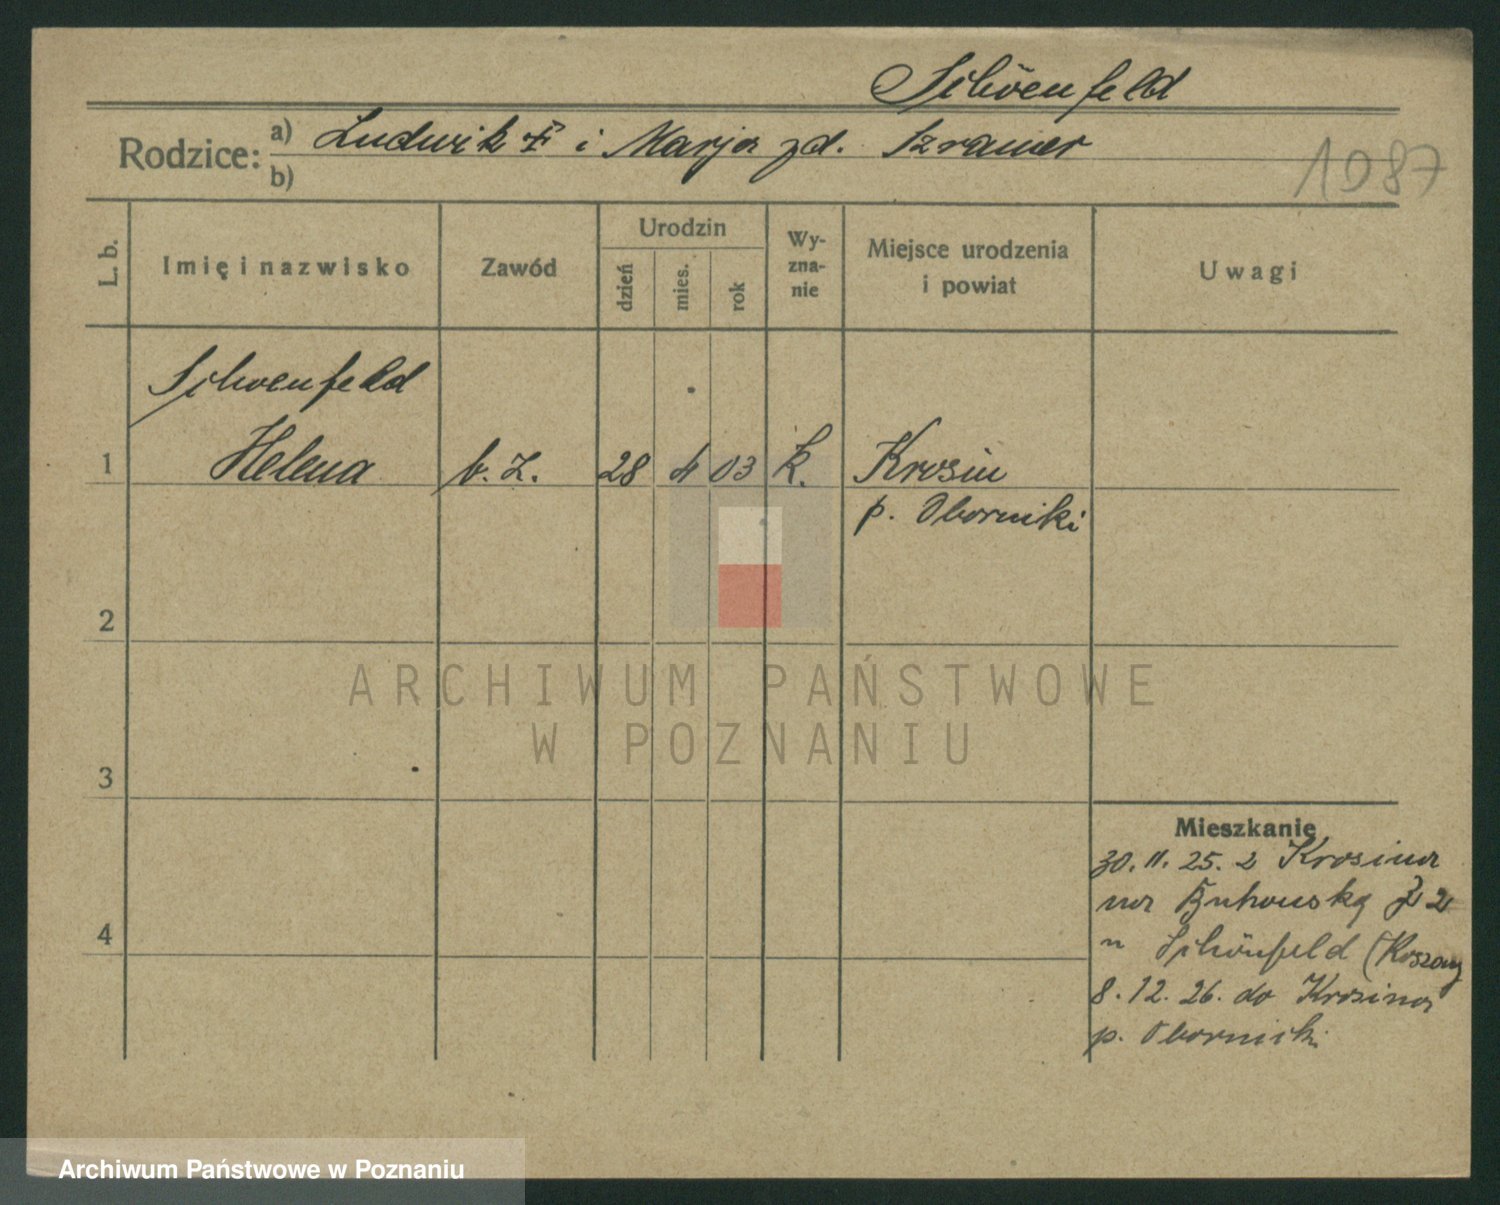 Schöenfeld
Rodzice: a) Ludwik i Marja zd. Szramer
b)
1087
L. b.
Imię i nazwisko
Zawód
Urodzin
dzień
mies.
rok
Wy-
zna-
nie
Miejsce urodzenia
i powiat
Uwagi
Schoenfeld
1 Helena b. z. 28 4 03 k. Krosin
p. Oborniki
2
3
4
Mieszkanie
30. 11. 25. z Krosina
na 2
Schönfeld
8. 12. 26. do Krosina
p. Oborniki
ARCHIWUM PAŃSTWOWE
W POZNANIU
Archiwum Państwowe w Poznaniu